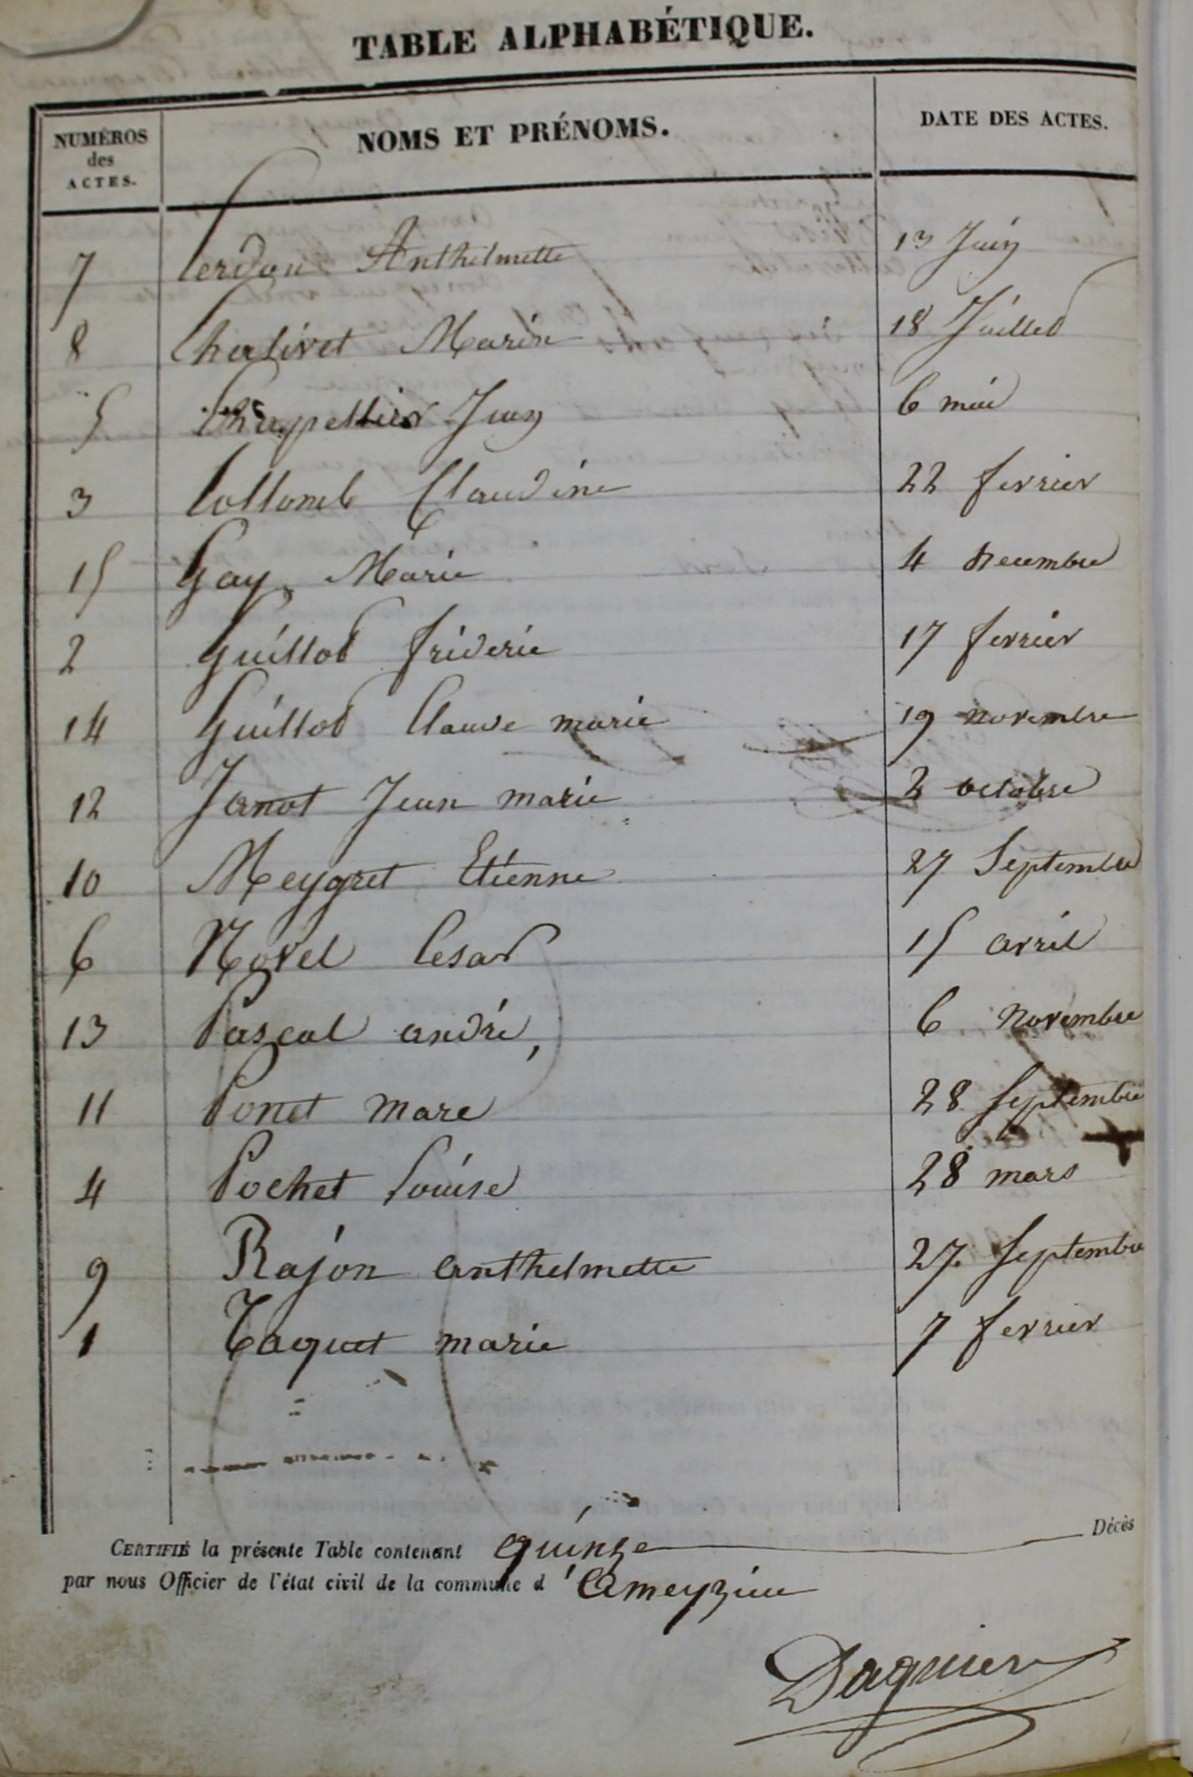 TABLE ALPHABÉTIQUE.
NUMÉROS des ACTES. NOMS ET PRÉNOMS. DATE DES ACTES.
7 Cerdon Anthelmette 13 Juin
8 Chalivet Marie 18 Juillet
5 Chappellier Jean 6 mai
3 Collomb Claudine 22 fevrier
15 Gay Marie 4 Decembre
2 Guillod frideric 17 fevrier
14 Guillod Claude marie 19 novembre
12 Janot Jean marie 2 octobre
10 Meygret Etienne 27 Septembre
6 Novel Cesar 15 avril
13 Pascal andré, 6 novembre
11 Ponet marc 28 Septembre
4 Pochet Louise 28 mars
9 Rajon anthelmette 27 Septembre
1 Taquet marie 7 fevrier
CERTIFIÉ la présente Table contenant quinze Décès
par nous Officier de l'état civil de la commune d'Ameyzieu
Dagnier